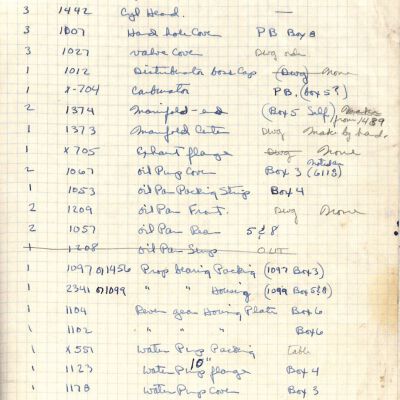 3 1442 Cyl Head. —
3 1007 Hand hole Cove P.B Box 8
3 1027 valve Cove Dwg
1 1012 Distributor Cap (Dwg) None
1 X-704 Carburator P.B. (box 5?)
2 1374 Manifold-end (Box 5 Self) from 1489
1 1373 Manifold Cete Dwg Make by hand.
1 X705 Exhaust flange Dwg None
2 1067 oil Pup Cove Box 3 (6113)
1 1053 oil Pan Packing Strip Box 4
2 1209 oil Pan Front. Dwg None
2 1057 oil Pan Rear 5&8
1 1208 oil Pan Strips OUT
1 1097 or 1456 Prop bearing Packing (1097 Box 3)
1 2341 or 1099 " " Housing (1099 Box 5&8)
1 1104 Rever gear Housing Plate Box 6
1 1102 " " " Box 6
1 X551 Water Pup Packing table
1 1123 Water Pup flange 10" Box 4
1 1178 Water Pup Cove Box 3